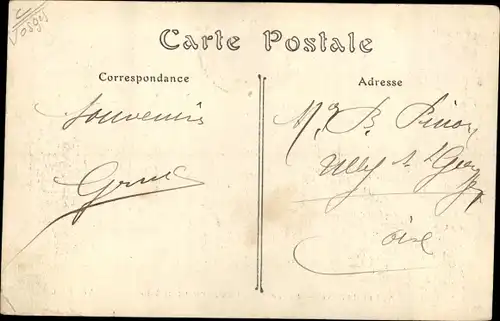 Vosges
Carte Postale
Correspondance
Adresse
Souvenirs
Mr B. Pinon
Ully St Georges
Oise